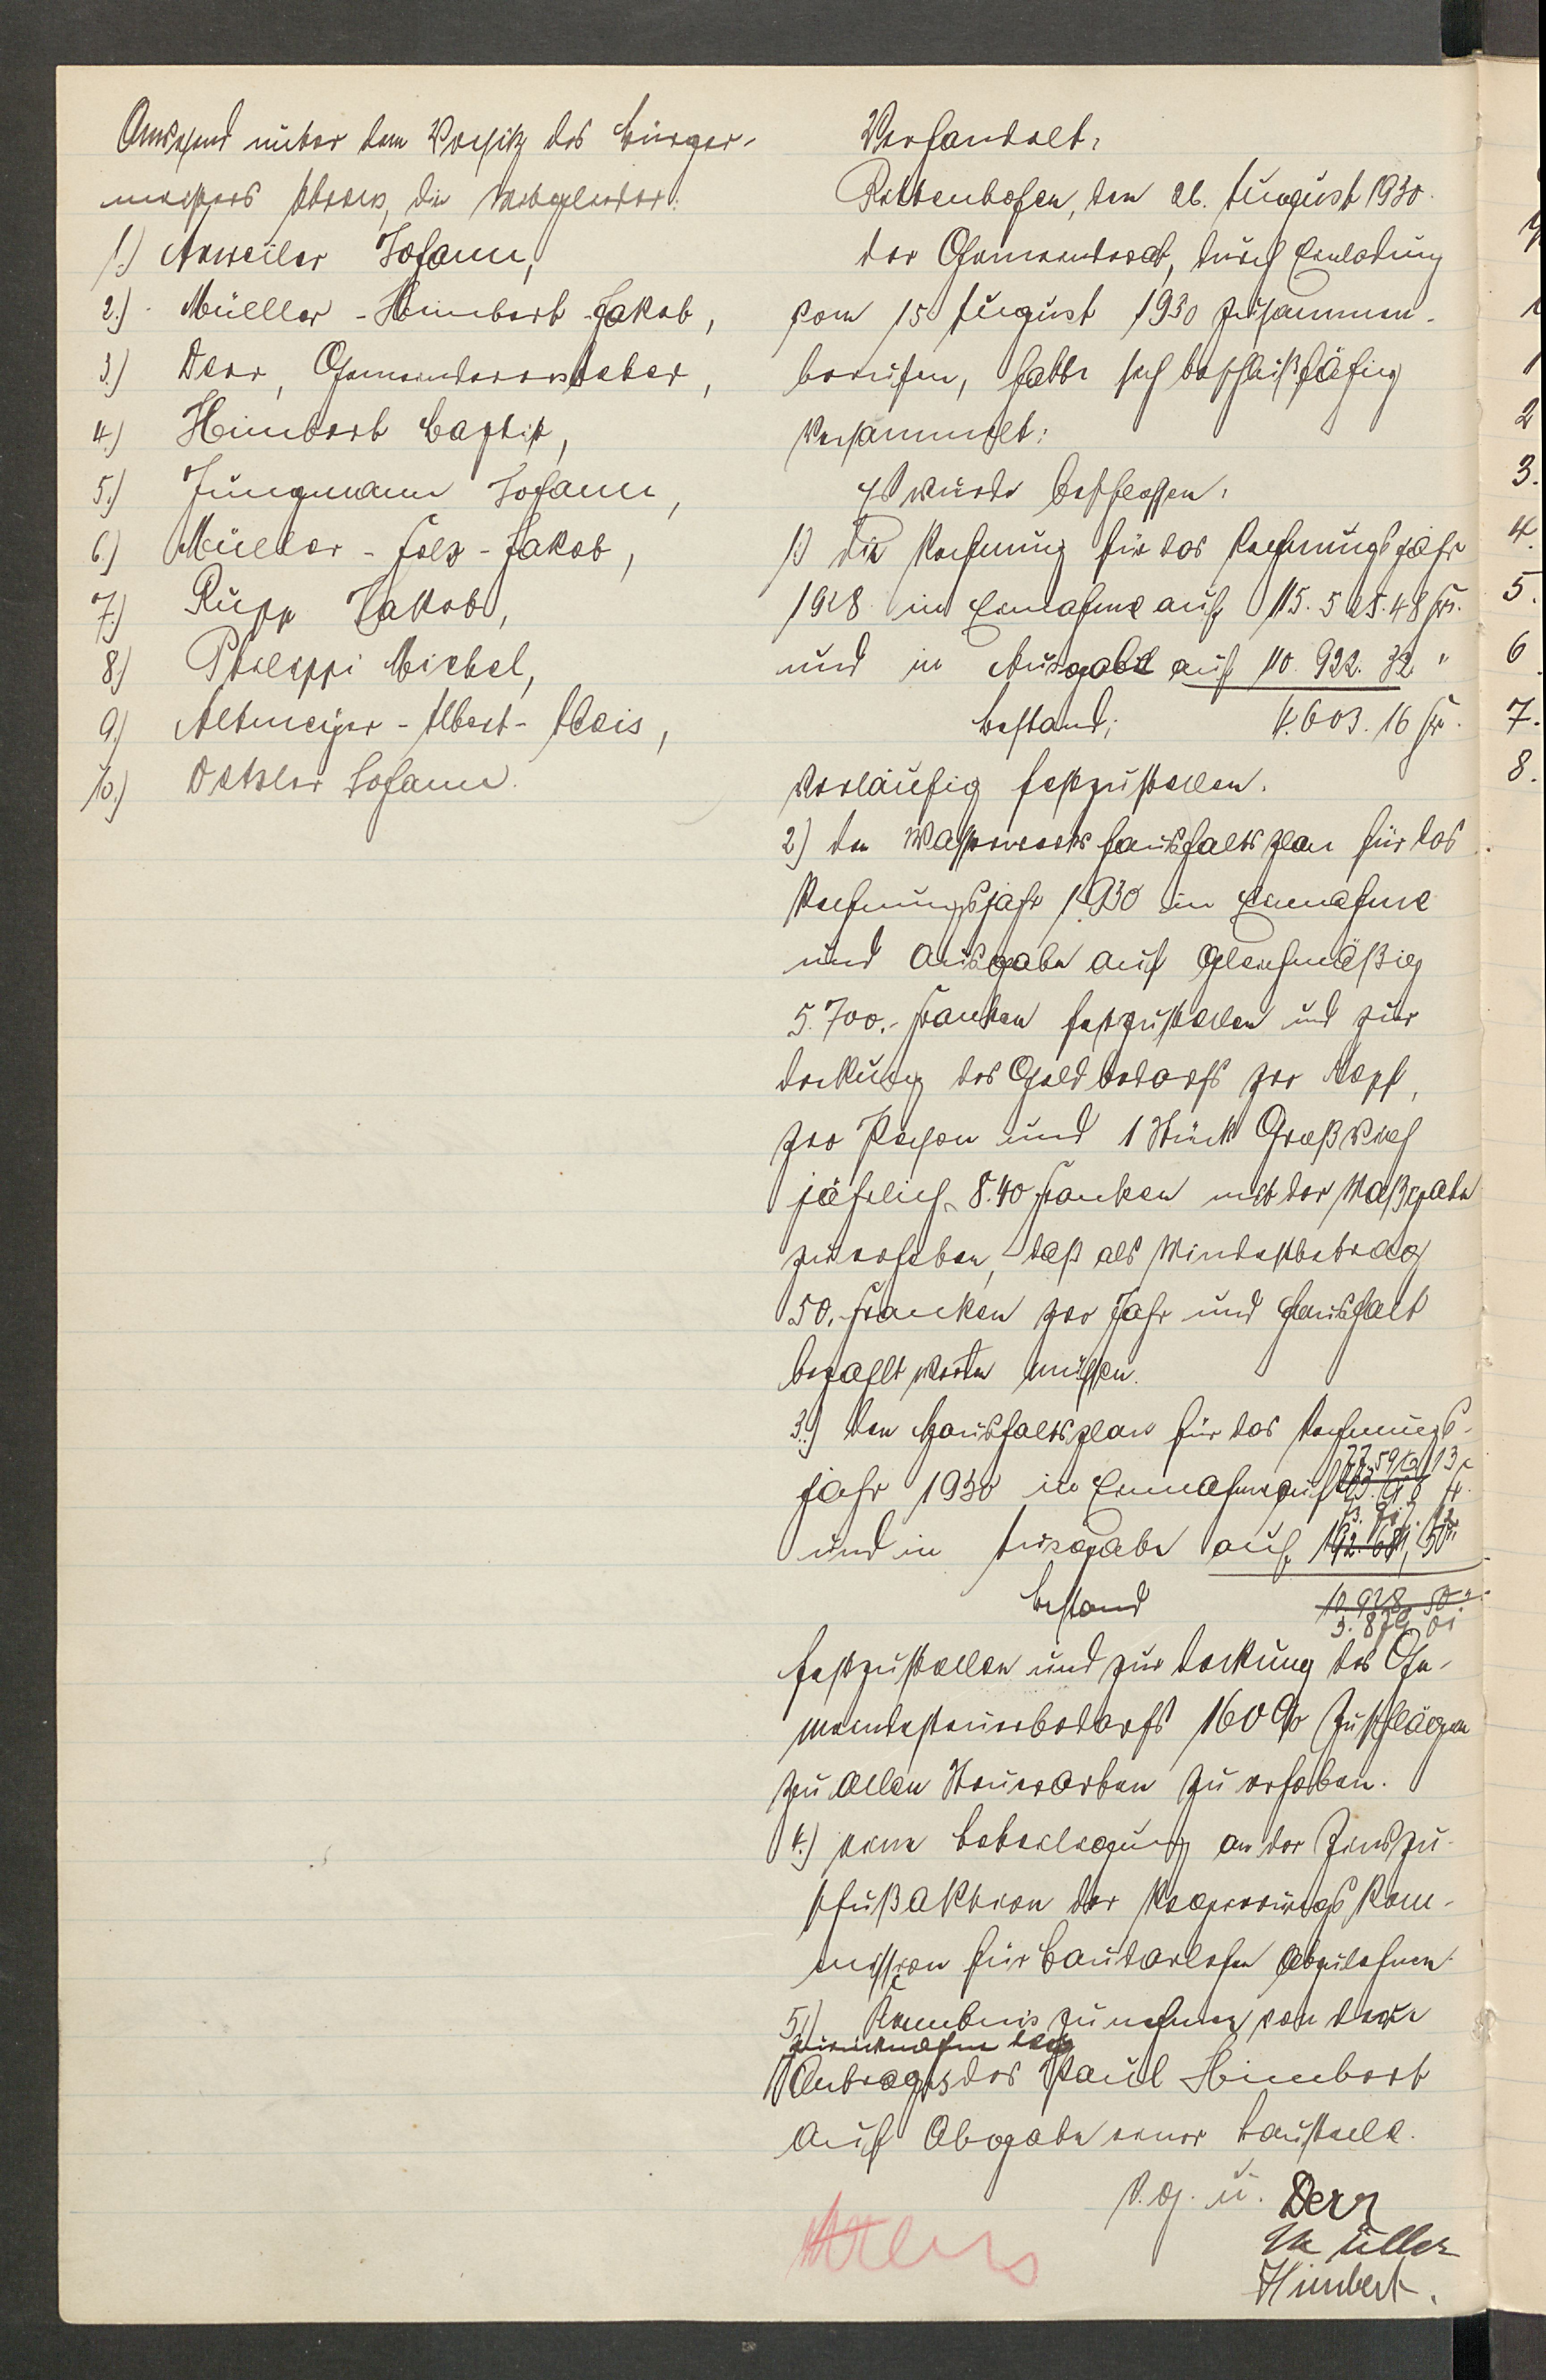 Anwesend unter dem Vorsitz des Bürger-
meisters Ahrens, die Mitglieder:
1.) Anweiler Johann,
2.) Müller-Himbert-Jakob,
3.) Derr, Gemeindevorsteher,
4.) Himbert Baptist,
5.) Jungmann Johann,
6.) Müller-Folz-Jakob,
7.) Rupp Jakob,
8.) Philippi Michel,
9.) Altmeyer-Albert-Alois,
10.) Johann.
Verhandelt,
Rittenhofen, den 26. August 1930.
der Gemeinderat, durch Einladung
vom 15 August 1930 zusammen-
berufen, hatte sich beschlußfähig
versammelt:
Es wurde beschlossen,
1.) die Rechnung für das Rechnungsjahr
1928 in Einnahme auf 115.525.48 Fr.
und in Ausgabe auf 110.922.32 "
Bestand; 4.603.16 Fr.
vorläufig festzustellen.
2.) den Wasserwerkshaushaltsplan für das
Rechnungsjahr 1930 in Einnahme
und Ausgabe auf gleichmäßig
5.700.- Franken festzustellen und zur
Deckung des Geldbedarfs pro Kopf,
pro Person und 1 Stück Großvieh
jährlich 8.40 Franken mit der Maßgabe
zu erheben, daß als Mindestbetrag
50.- Franken pro Jahr und Haushalt
bezahlt werden müssen.
3.) den Haushaltsplan für das Rechnungs-
jahr 1930 in Einnahme auf
und in Ausgabe auf
Bestand 10.928,50 "
festzustellen und zur Deckung des Ge-
meindesteuerbedarfs 160 % Zuschläge
zu allen Steuerarten zu erheben.
4.) eine Beteiligung an der Zinszu-
schußaktion der Regierungskom-
mission für Baudarlehen abzulehnen.
5.) Kenntnis zu nehmen von der
Zurücknahme des
Antrages des Paul Himbert
auf Abgabe einer Baustelle.
v. g. u. Derr
Müller
Himbert.
Ahrens
2
3.
4.
5.
6
7.
8.